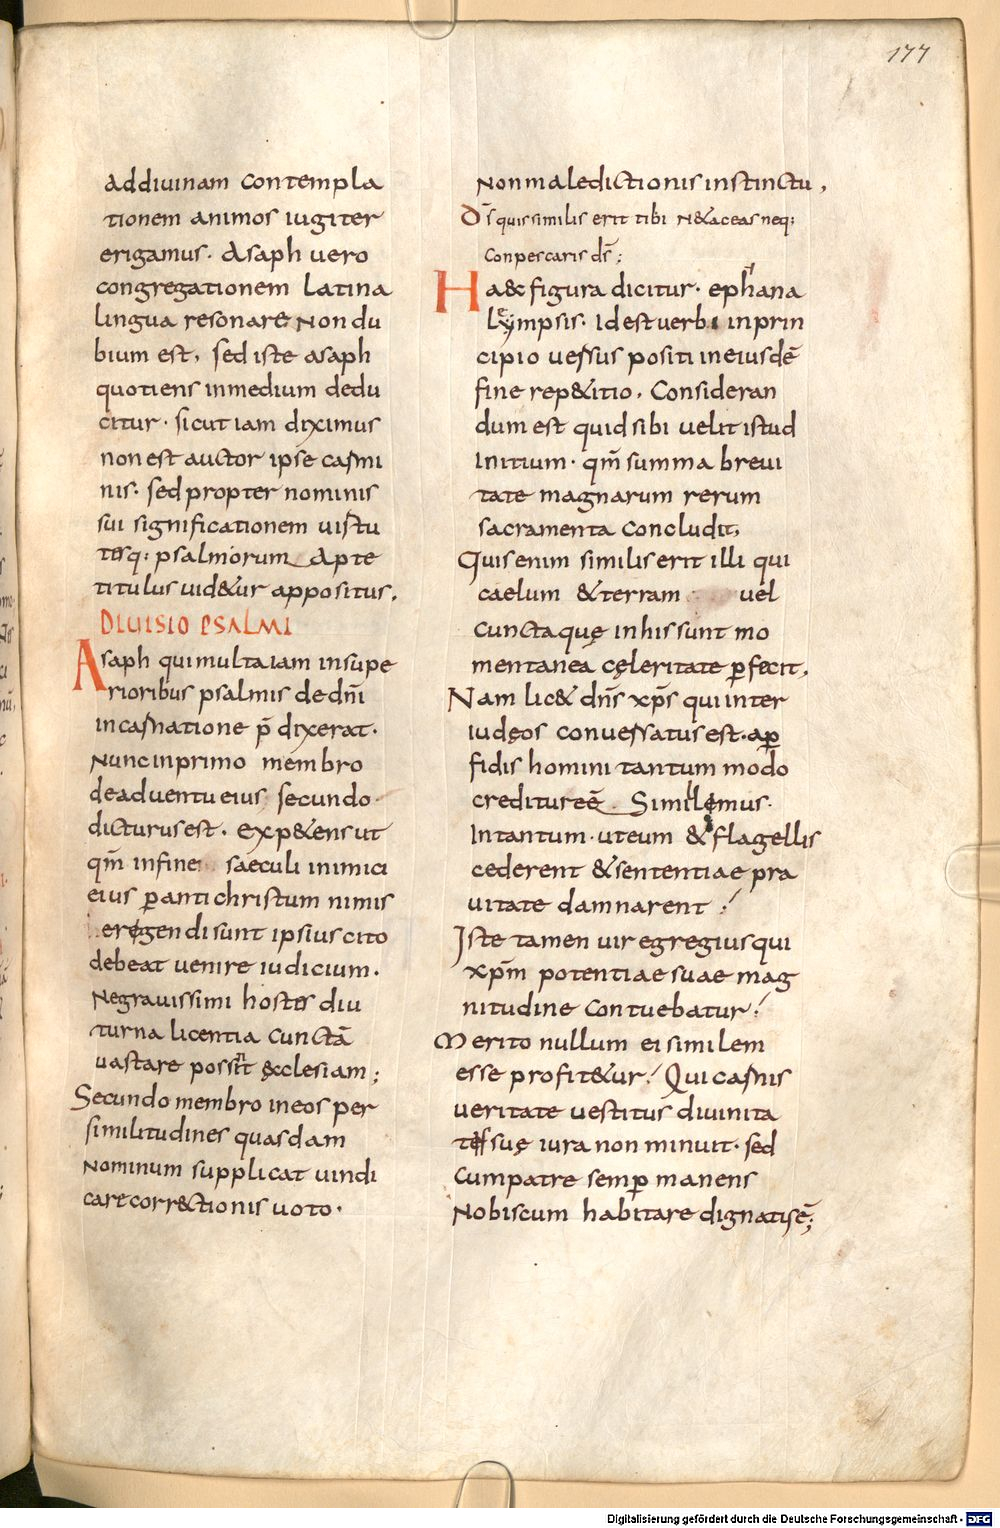 177
addiuinam contempla
tionem animos iugiter
erigamus· Asaph uero
congregationem latina
lingua resonare non du
bium est, sed iste asaph
quotiens inmedium dedu
citur· sicut iam diximus
non est auctor ipse carmi
nis· sed propter nominis
sui significationem uirtu
tesq: psalmorum Apte
titulus uid&ur appositus.
DIUISIO PSALMI
Asaph qui multa iam in supe
rioribus psalmis de dn̄i
incarnatione p̄dixerat·
Nunc in primo membro
de aduentu eius secundo
dicturus est. exp&ens ut
qm̄ in fine saeculi inimici
eius ꝑ antichristum nimis
erigendi sunt ipsius cito
debeat uenire iudicium.
Ne grauissimi hostes diu
turna licentia cunctā
uastare possint ęcclesiam;
Secundo membro in eos per
similitudines quasdam
nominum supplicat uindi
care corr&ctionis uoto·
Non maledictionis instinctu,
Ds̄ quis similis erit tibi n&aceas neq:
conpescaris ds̄;
Haec figura dicitur· ephana
lempsis· Id est uerbi in prin
cipio uersus positi in eiusdē
fine rep&itio. Consideran
dum est quid sibi uelit istud
initium· qm̄ summa breui
tate magnarum rerum
sacramenta concludit,
Quis enim similis erit illi qui
caelum &terram uel
cuncta quę in his sunt mo
mentanea cęleritate ꝑfecit,
Nam lic& dn̄s xp̄s qui inter
iudęos conuersatus est· a ꝑ
fidis homini tantummodo
creditur eē Similemus·
Intantum· ut eum & flagellis
cederent & sententiae pra
uitate damnarent!
Iste tamen uir egregius qui
xp̄m potentiae suae mag
nitudine contuebatur!
Merito nullum ei similem
esse profit&ur! Qui carnis
ueritate uestitus diuinita
tis suę iura non minuit· sed
cum patre semꝑ manens
Nobiscum habitare dignatus ē;
Digitalisierung gefördert durch die Deutsche Forschungsgemeinschaft - DFG